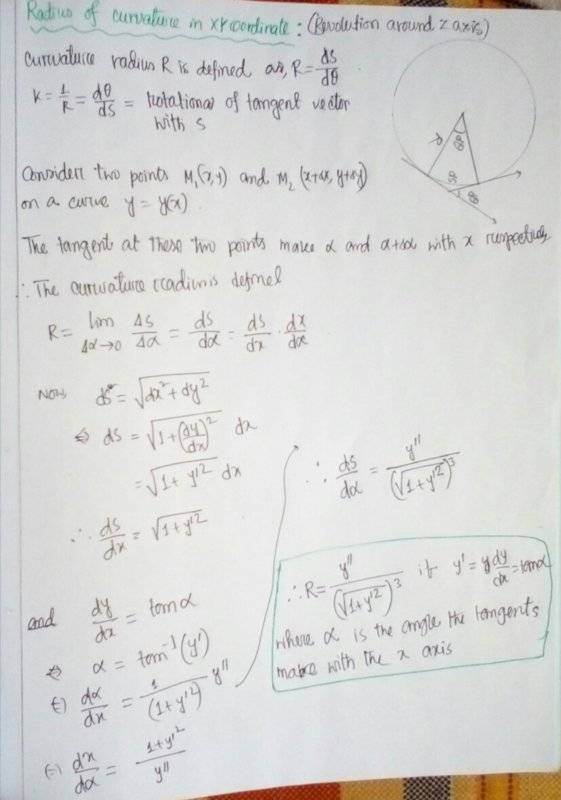 Radius of curvature in XY coordinate : (Revolution around z axis)
Curvature radius R is defined as, R = ds/dθ
K = 1/R = dθ/ds = Rotational of tangent vector
with s
Consider two points M₁(x,y) and M₂ (x+Δx, y+Δy)
on a curve y = y(x)
The tangent at these two points make α and α+Δα with x respectively
∴ The curvature radius is defined
R = lim Δα→0 Δs/Δα = ds/dα = ds/dx · dx/dα
Now, ds = √(dx² + dy²)
⇔ ds = √(1 + (dy/dx)²) dx
= √(1 + y'²) dx
∴ ds/dx = √(1 + y'²)
and dy/dx = tan α
⇔ α = tan⁻¹ (y')
⇔ dα/dx = 1/(1+y'²) y''
⇔ dx/dα = (1+y'²)/y''
∴ ds/dα = y''/(√(1+y'²))³
∴ R = y''/(√(1+y'²))³ if y' = dy/dx = tanα
where α is the angle the tangents
make with the x axis